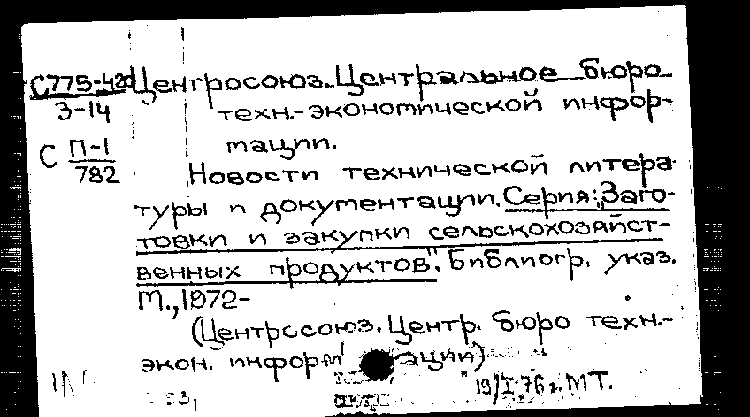 С775-420 Центросоюз. Центральное бюро
3-14 техн.-экономической инфор-
С П-1 мации.
782 Новости технической литера-
туры и документации. Серия: "Заго-
товки и закупки сельскохозяйст-
венных продуктов". Библиогр. указ.
М., 1972-
(Центросоюз. Центр. бюро техн.-
экон. информации)
19/I-76 г. МТ.